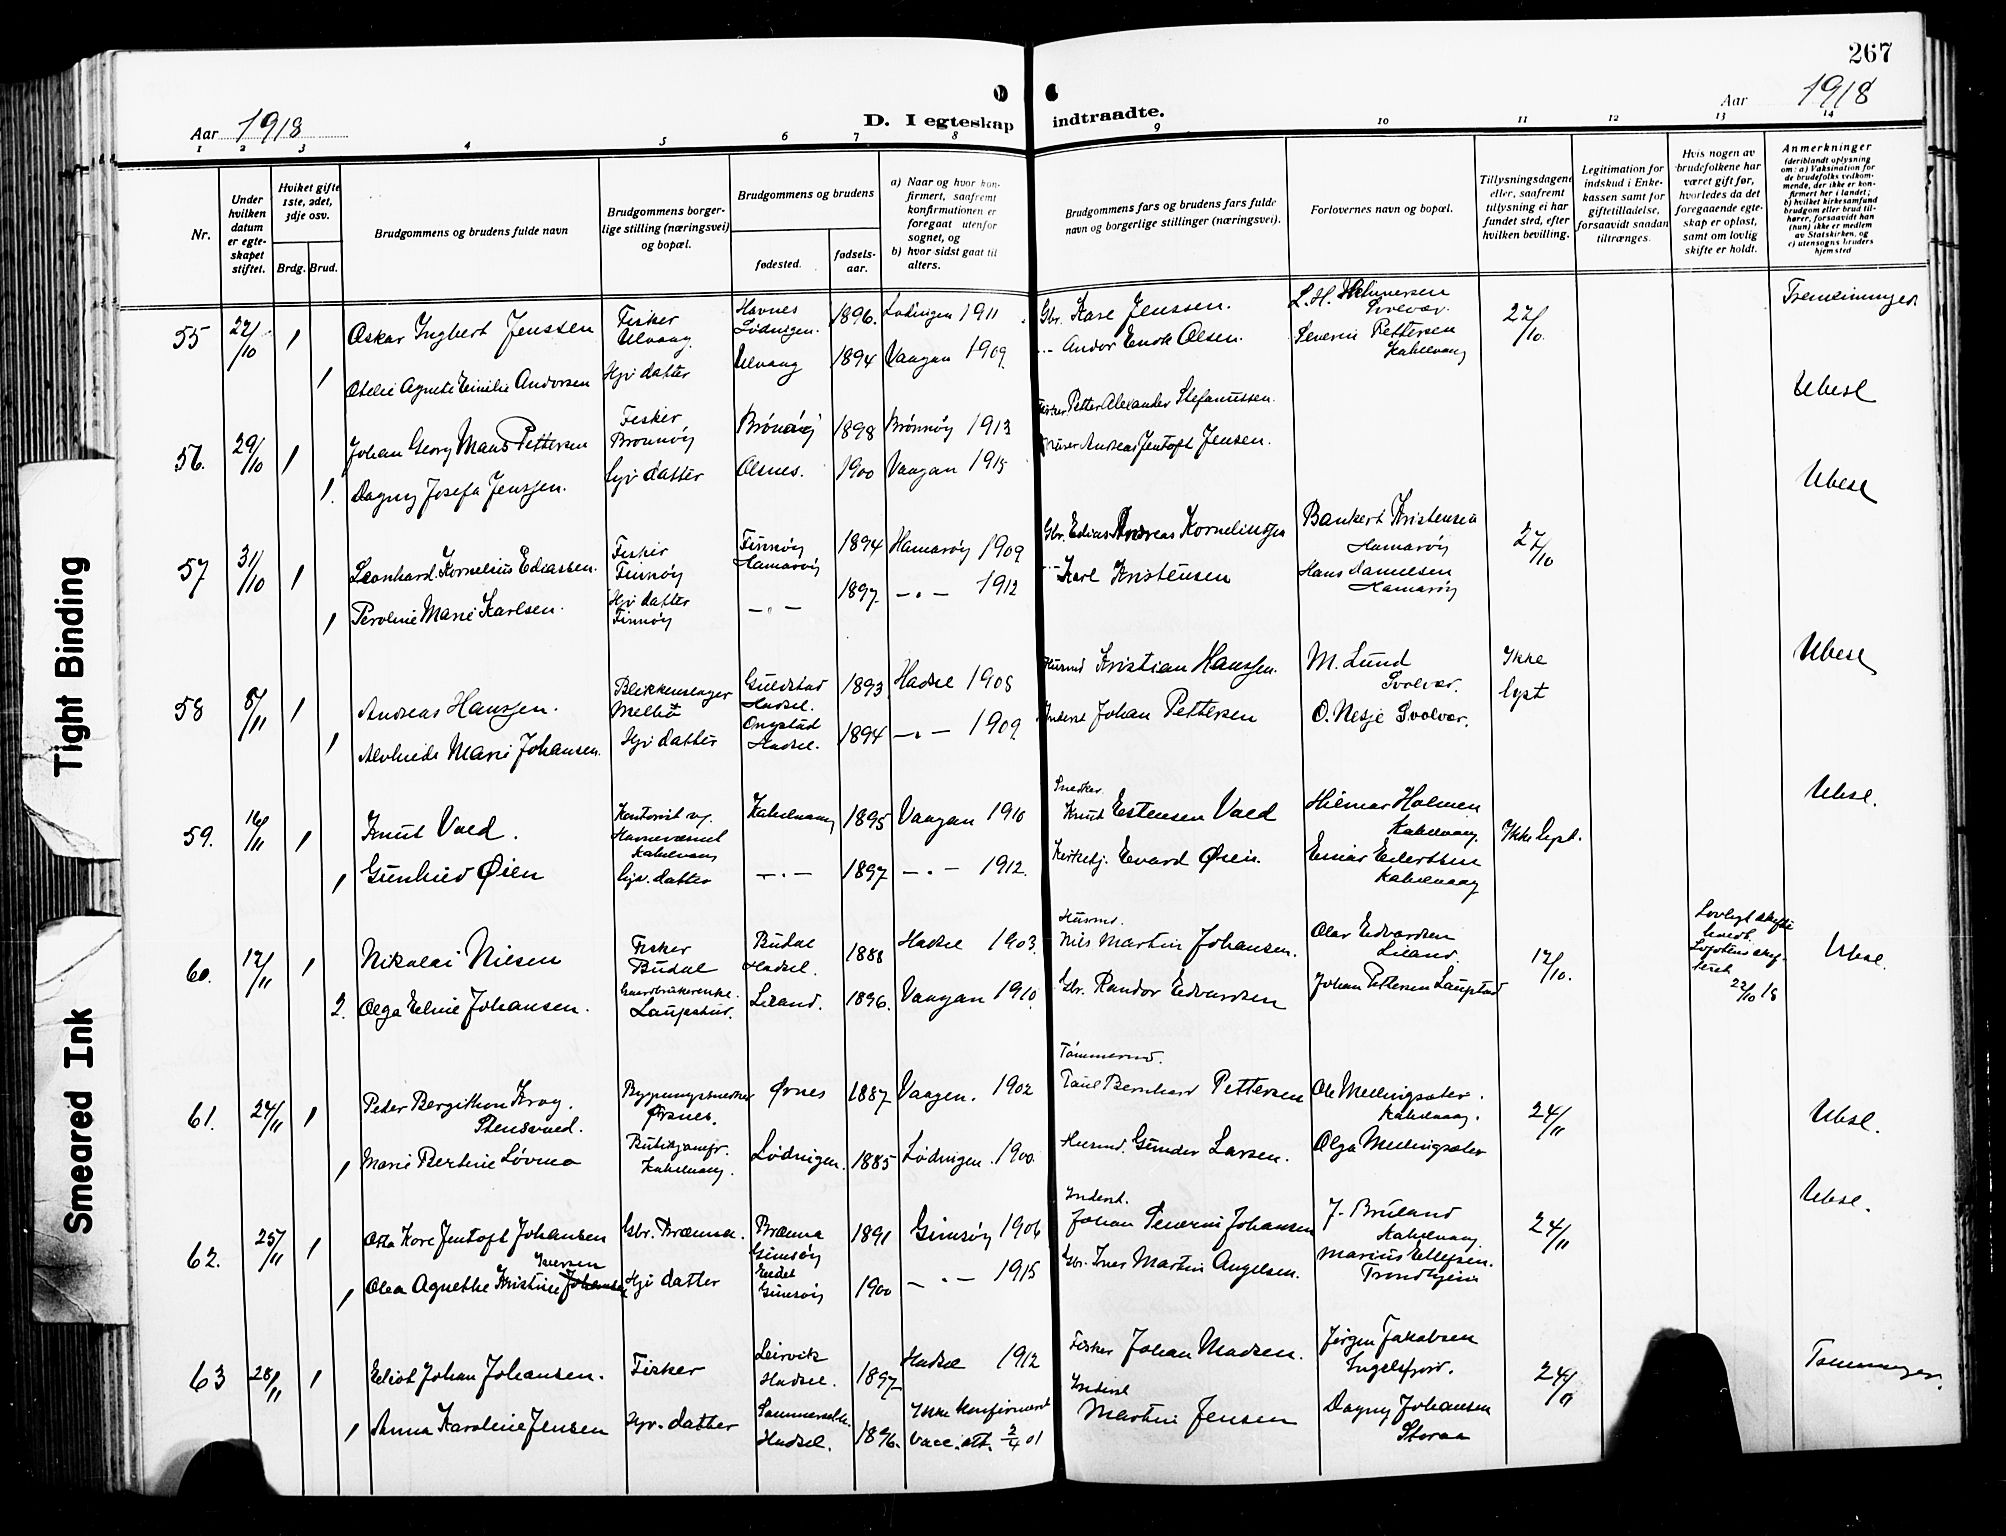 267
Aar 1918
D. I egteskap indtraadte.
Aar 1918
1 2 3 4 5 6 7 8 9 10 11 12 13 14
Nr.
Under hvilken datum er egteskapet stiftet.
Hvilket gifte 1ste, 2det, 3dje osv.
Brdg. Brud.
Brudgommens og brudens fulde navn
Brudgommens borgerlige stilling (næringsvei) og bopæl.
Brudgommens og brudens
fødested.
fødselsaar.
a) Naar og hvor konfirmert, saafremt konfirmationen er foregaat utenfor sognet, og
b) hvor sidst gaat til alters.
Brudgommens fars og brudens fars fulde navn og borgerlige stillinger (næringsvei).
Forlovernes navn og bopæl.
Tillysningsdagene eller, saafremt tillysning ei har fundet sted, efter hvilken bevilling.
Legitimation for indskud i Enkekassen samt for giftetilladelse, forsaavidt saadan tiltrænges.
Hvis nogen av brudefolkene har været gift før, hvorledes da det foregaaende egteskap er opløst, samt om lovlig skifte er holdt.
Anmerkninger
(deriblandt oplysning om: a) Vaksination for de brudefolks vedkommende, der ikke er konfirmert her i landet; b) hvilket kirkesamfund brudgom eller brud tilhører, forsaavidt han (hun) ikke er medlem av Statskirken, og c) utensogns bruders hjemsted
55 27/10 1 Oskar Ingbert Jenssen Fisker Ulvaag Havnes Lødingen 1896. Lødingen 1911 Gbr. Kare Jenssen. Svolvær. 27/10. Tremenninger
1 Otelie Agnete Emilie Andorsen Hjv datter Ulvaag 1894 Vaagan 1909 Andor Enok Olsen. Severin Pettersen Kabelvaag
Ubesl
56. 29/10 1 Johan Georg Mans Pettersen Fisker Brønnøy Brønnøy 1898 Brønnøy 1913 Fisker Petter Alexander Stefanussen.
1. Dagny Josefa Jenssen. Hjv datter Olsnes. 1900 Vaagan 1915 Andreas Jentoft Jensen.
Ubesl
57 31/10 1 Leonhard Kornelius Ediassen. Fisker Finnøy Finnøy Hamarøy 1894 Hamarøy 1909 Gbr. Edias Andreas Korneliussen Bankert Kristensen Hamarøy 27/10
1 Peroline Marie Karlsen. Hjv datter Finnøy —„— 1897 —„— 1912 Karl Kristensen Hans Danielsen Hamarøy
Ubesl
58 8/11 1 Andreas Hanssen. Blikkenslager Melbø Guldstad Hadsel. 1893 Hadsel 1908 Husmd Kristian Hanssen. M. Lund Svolvær. Ikke lyst
1 Alvhilde Marie Johansen. Hjv datter Ongstad Hadsel. 1894 —„— 1909 Inderst Johan Pettersen O. Nesje Svolvær.
Ubesl.
59. 16/11 1 Knut Vold. Kontorist v. Havnevæsnet Kabelvaag Kabelvaag 1895 Vaagan 1910 Snedker. Knut Estensen Vold Hilmar Holmen Kabelvaag. Ikke lyst.
1 Gunhild Øien Hjv. datter —„— 1897 —„— 1912. Kirketj. Edvard Øien. Einar Edertsen Kabelvaag
60. 17/11 1 Nikolai Nilsen Fisker Budal Budal Hadsel. 1888 Hadsel 1903. Husmd. Nils Martin Johansen. Olav Edvardsen Liland. 17/10. Ubesl.
Lovlig skifte holdt. Lofotens skifteret 22/10 18
2. Olga Eline Johansen. Gaardbrukerenke. Laupstad. Liland. 1896. Vaagan 1910. Gbr. Randor Edvardsen Johan Pettersen Laupstad
61. 24/11 1 Peder Bergithon Krog. Stensvold. Bygningssnedker Ørsnes. Ørsnes 1887 Vaagen. 1902 Tømmermd. Paul Bernhard Pettersen Ole Mellingsæter. Kabelvaag. 24/11 Ubesl.
1 Marie Bertine Løvmo Butikjomfr. Kabelvaag. Lødingen. 1885 Lødingen. 1900. Husmd. Gunder Larsen. Olga Mellingsæter
Ubesl.
62. 25/11 1 Otto Kore Jentoft Johansen Gbr. Brenna. Brenna Gimsøy 1891 Gimsøy 1906 Inderst. Johan Severin Johansen J. Bruland Kabelvaag. 24/11
1 Olea Agnethe Kristine Iversen Hjv datter Eidet Gimsøy 1900 —„— 1915 Gbr. Iver Martin Angelsen. Marius Ellefsen. Trondhjem
63 28/11 1 Eliot Johan Johansen. Fisker Leirvik Hadsel. 1897 Hadsel 1912 Fisker Johan Madsen. Jørgen Jakobsen Ingelsfjord. 24/11
1 Anna Karoline Jensen Hjv. datter Sommerselv. Hadsel. 1896. Ikke konfirmert vacc. att. 2/4 01 Inderst Martin Jensen Dagny Johansen Storaa
Tight Binding
Smeared Ink